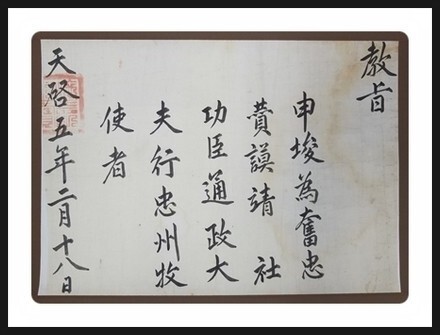 教旨
申埈為奮忠
賛謨靖 社
功臣通政大
夫行忠州牧
使者
天啓五年二月十八日